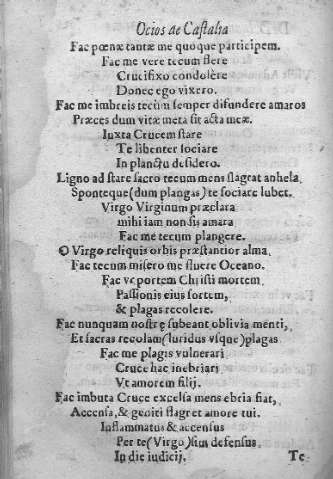 Ocios de Castalia
Fac pœnæ tantæ me quoque participem.
Fac me vere tecum flere
Crucifixo condolère
Donec ego vixero.
Fac me imbreis tecum semper difundere amaros
Præces dum vitæ meta sit acta meæ.
Iuxta Crucem stare
Te libenter sociare
In planctu desidero.
Ligno ad stare sacro tecum mens flagrat anhela
Sponteque(dum plangas) te sociare lubet.
Virgo Virginum præclara
mihi iam non sis amara
Fac me tecum plangere.
O Virgo reliquis orbis præstantior alma
Fac tecum misero me fluere Oceano.
Fac vt portem Christi mortem
Passionis eius sortem,
& plagas recolere.
Fac nunquam nostrę subeant oblivia menti,
Et sacras recolam(luridus vsque)plagas
Fac me plagis vulnerari
Cruce hac inebriari
Vt amorem filij.
Fac imbuta Cruce excelsa mens ebria fiat,
Accensa, & geniti flagret amore tui.
Inflammatus & accensus
Per te(Virgo)sim defensus
In die iudicij.
Te